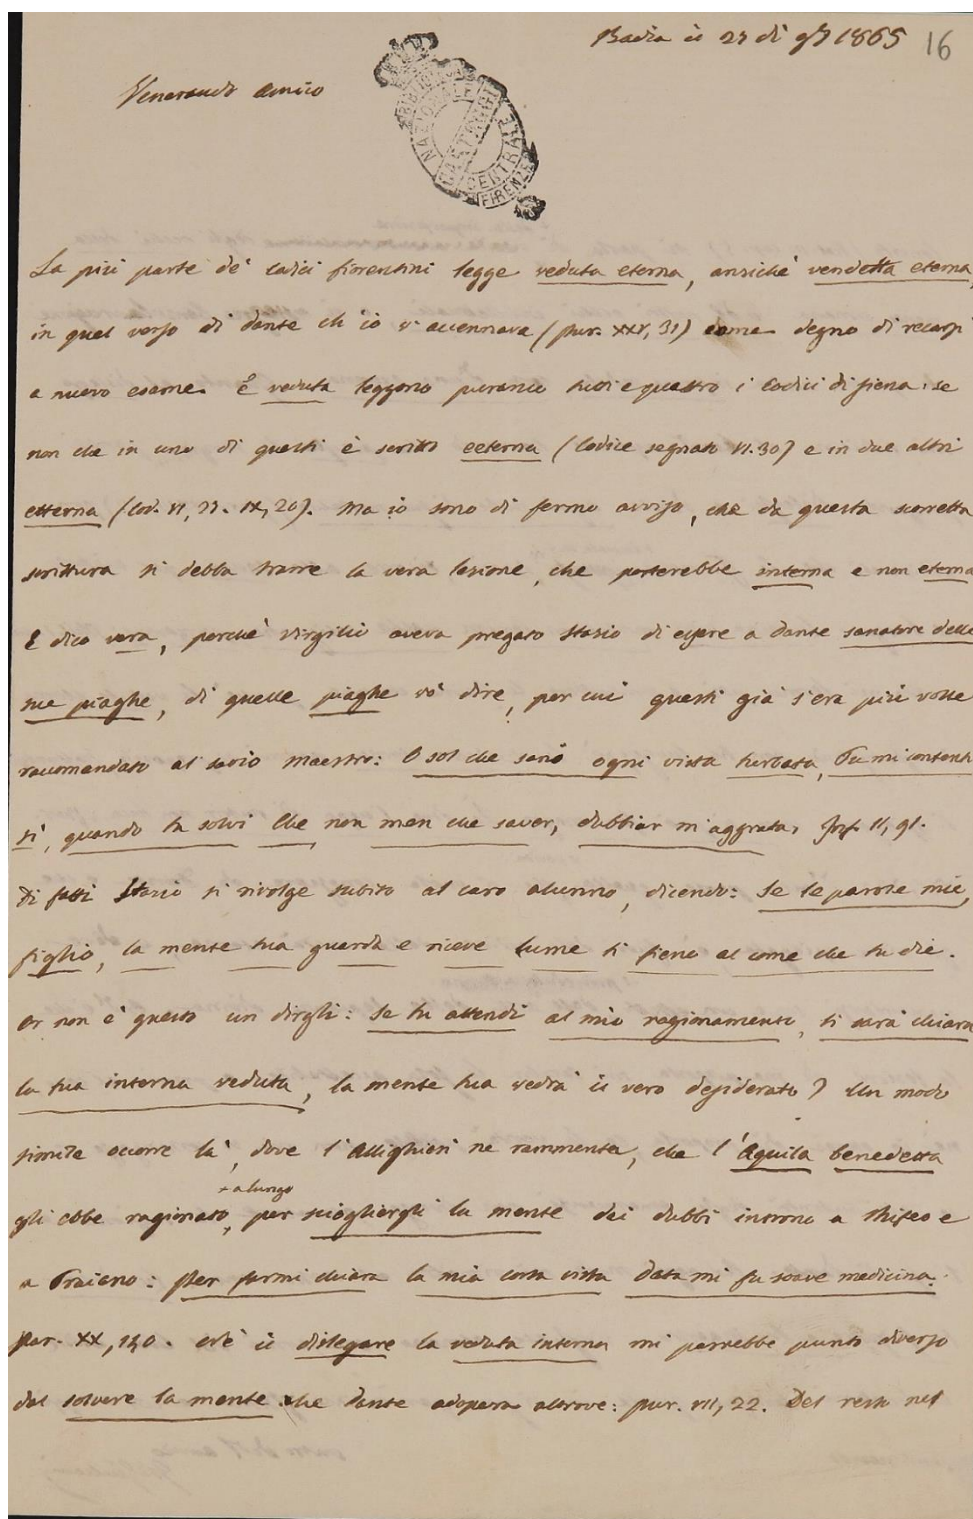 Badia il 27 di 9b 1865 16
Venerando Amico
BIBLIOTECA NAZIONALE CENTRALE FIRENZE
La più parte de' Codici fiorentini legge veduta eterna, anziché vendetta eterna,
in quel verso di Dante ch'io v'accennava (Pur. XXV, 31) come degno di recarsi
a nuovo esame. E veduta leggono puranco tutti e quattro i Codici di Siena: se
non che in uno di questi è scritto eeterna (Codice segnato VI.30) e in due altri
etterna (Cod. VI, 27. IX, 20). Ma io sono di fermo avviso, che da questa scorretta
scrittura si debba trarre la vera lezione, che porterebbe interna e non eterna
E dico vera, perché Virgilio aveva pregato Stazio di essere a Dante sanatore delle
sue piaghe, di quelle piaghe vo' dire, per cui questi già s'era più volte
raccomandato al savio Maestro: O sol che sani ogni vista turbata, Tu mi contenti
sì, quando tu solvi Che, non men che saver, dubbiar m'aggrata, Inf. 11, 91.
Di fatti Stazio si rivolge subito al caro alunno, dicendo: Se le parole mie,
figlio, la mente tua guarda e riceve Lume ti fieno al come che tu die.
Or non è questo un dirgli: Se tu attendi al mio ragionamento, ti sarà chiara
la tua interna veduta, la mente tua vedrà il vero desiderato? Un modo
simile occorre là, dove l'Allighieri ne rammenta, che l'Aquila benedetta
+ a lungo
gli ebbe ragionato, per sciogliergli la mente dei dubbi intorno a Rifeo e
a Traiano: Per farmi chiara la mia corta vista Data mi fu soave medicina.
Par. XX, 140. Né il dislegare la veduta interna mi parrebbe punto diverso
dal solvere la mente che Dante adopera altrove: Pur. VII, 22. Del resto nel